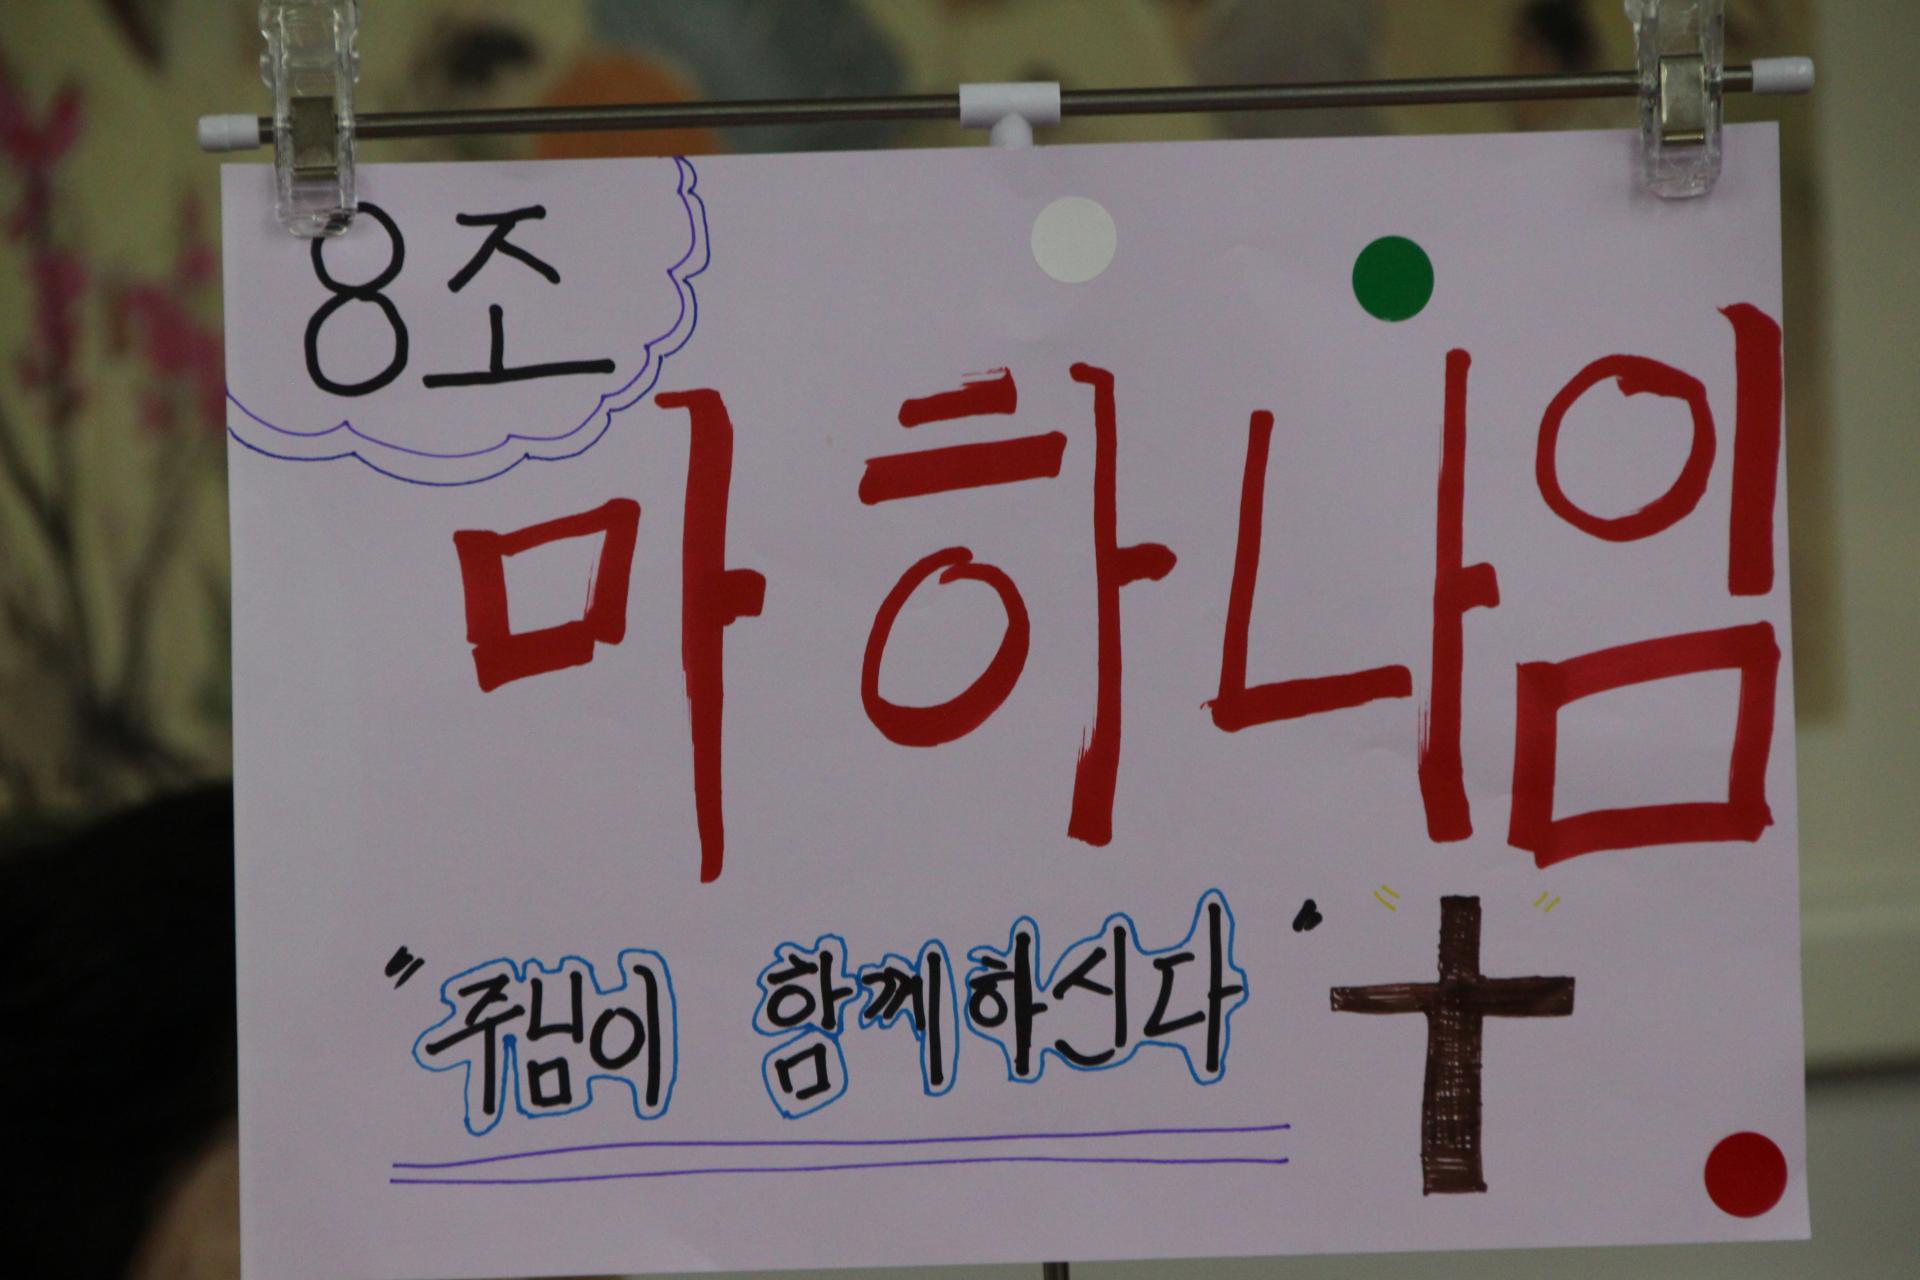 8조
마하나임
"주님이 함께하신다"